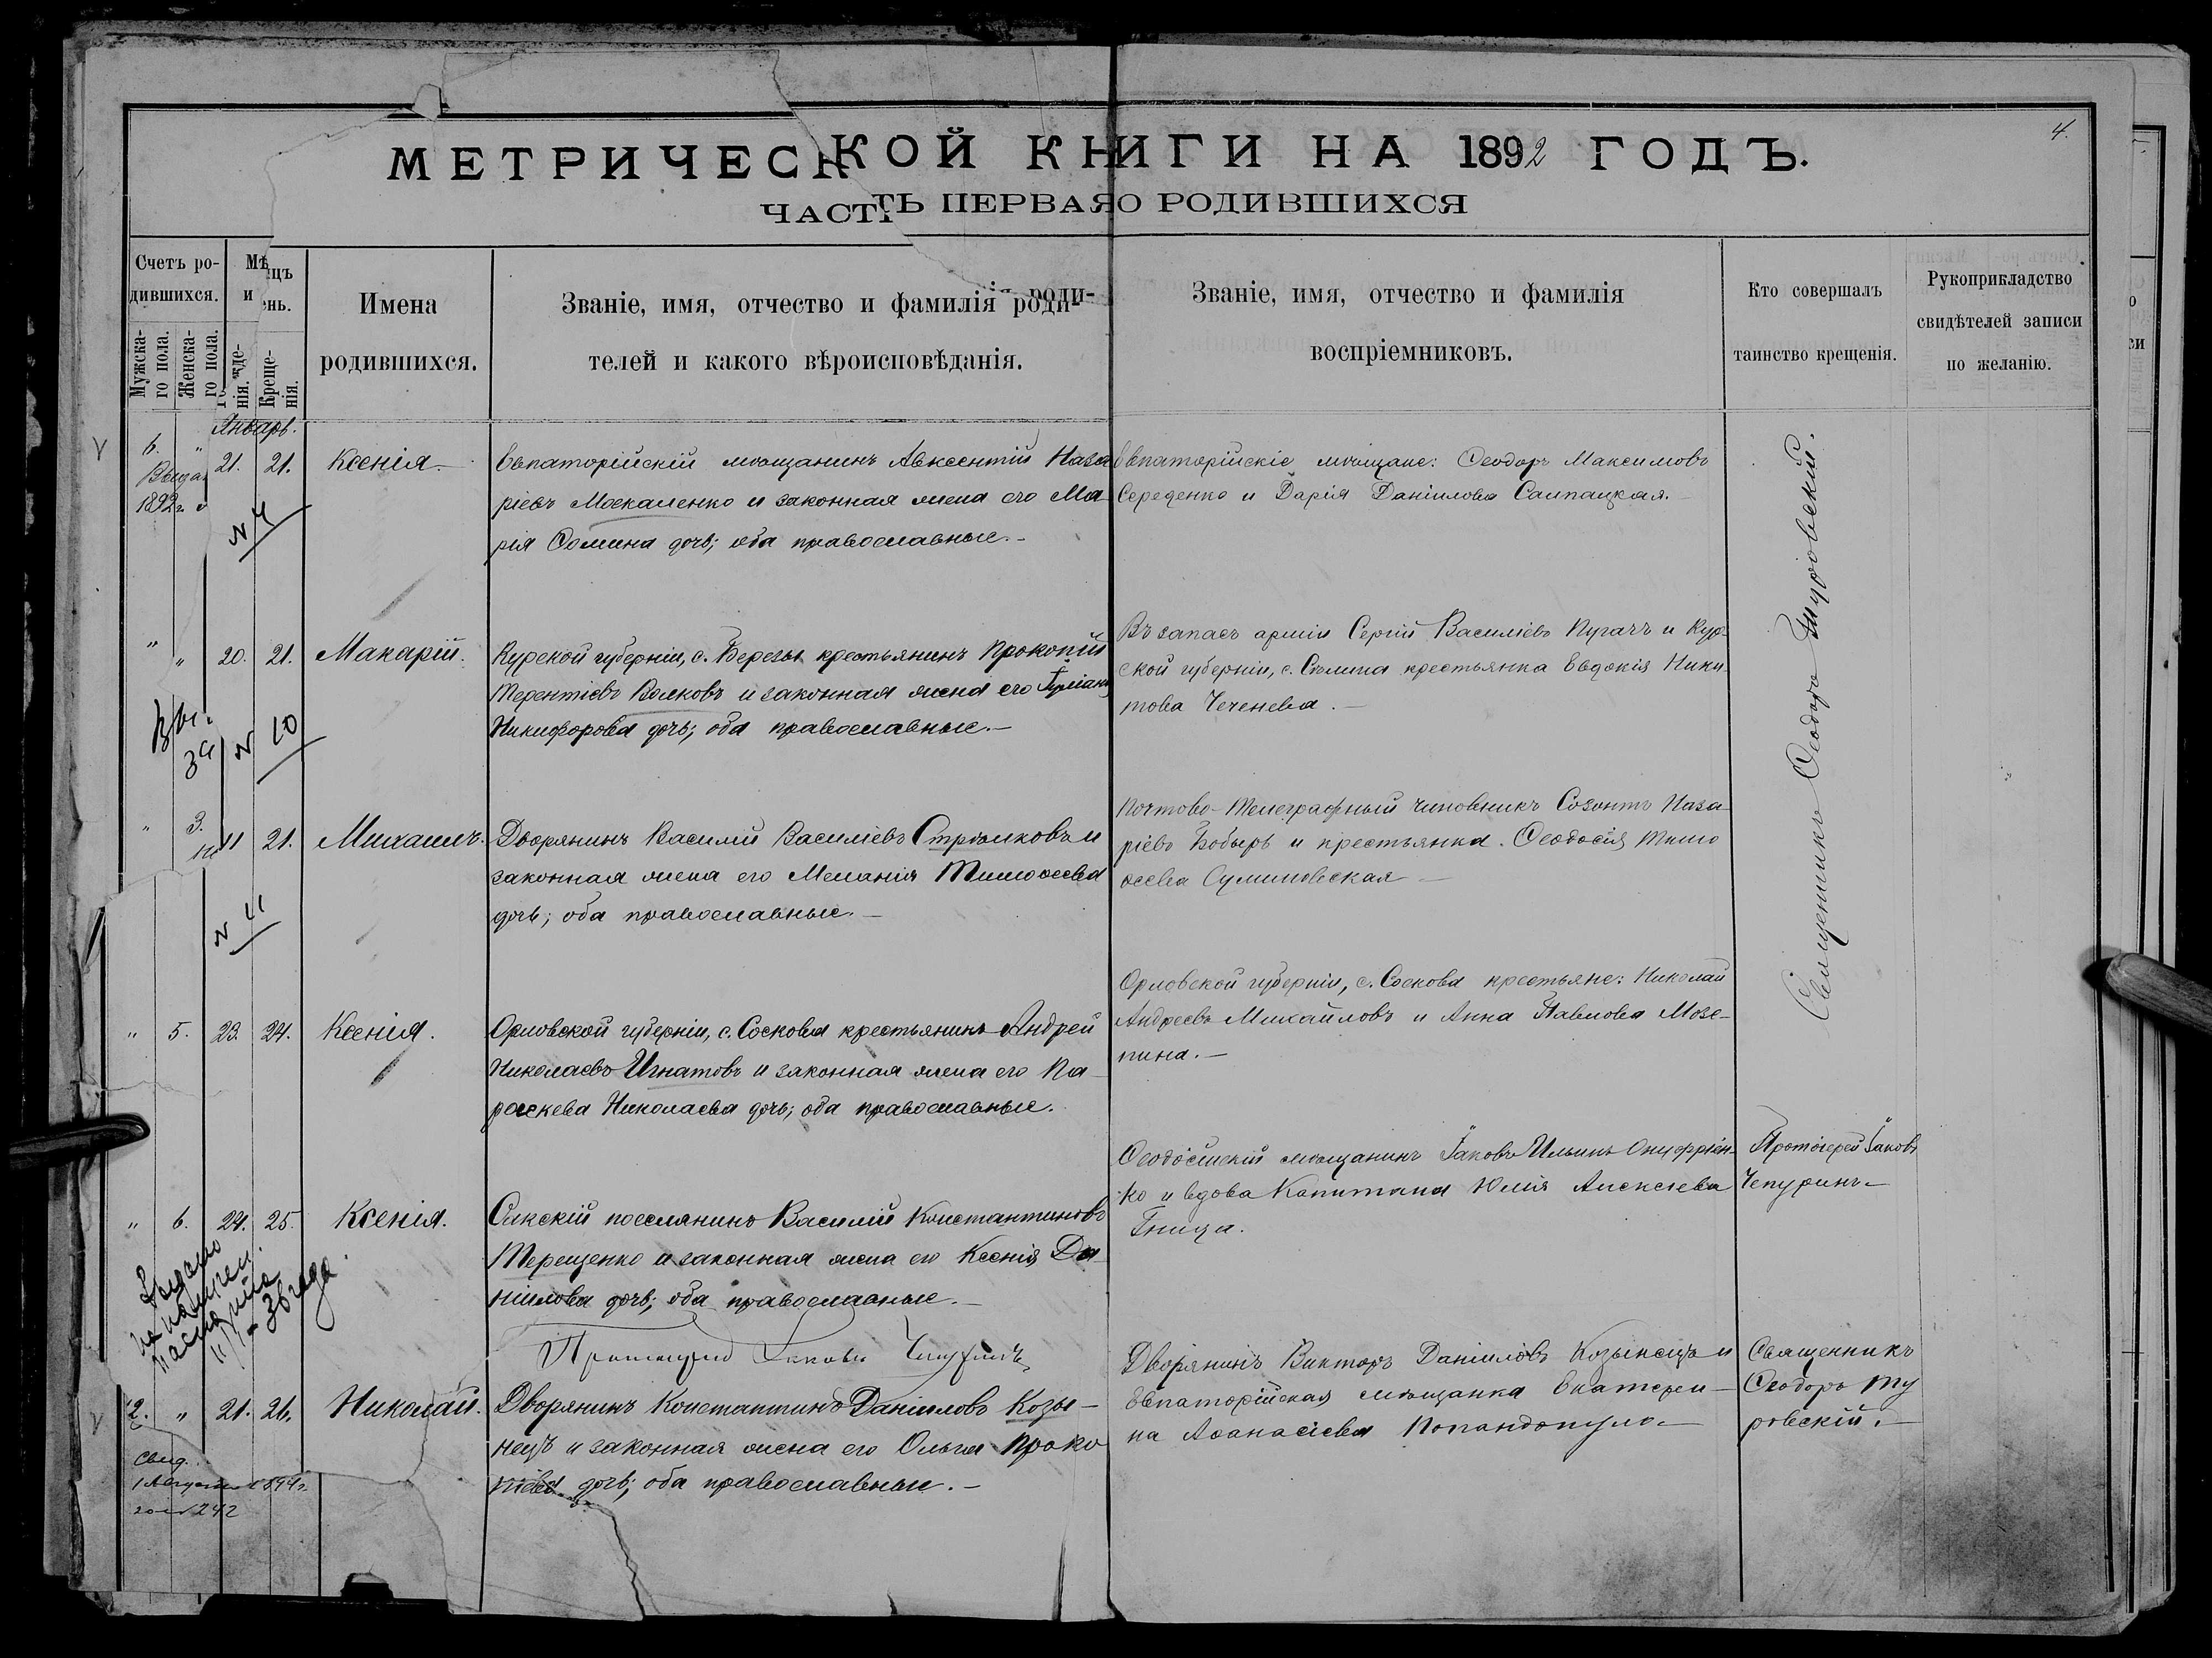 4.
МЕТРИЧЕСКОЙ КНИГИ НА 1892 ГОДЪ.
ЧАСТЬ ПЕРВАЯ О РОДИВШИХСЯ
Счетъ ро-
дившихся.
Мужска-
го пола.
Женска-
го пола.
Мѣ цъ
и ень.
жде-
нія.
Креще-
нія.
Имена
родившихся.
Званіе, имя, отчество и фамилія роди-
телей и какого вѣроисповѣданія.
Званіе, имя, отчество и фамилія
воспріемниковъ.
Кто совершалъ
таинство крещенія.
Рукоприкладство
свидѣтелей записи
по желанію.
Январь.
6. " 21. 21. Ксенія.
Выда
1892 г.
N 9
Евпаторійскій мѣщанинъ Авксентій Наза
ріевъ Москаленко и законная жена его Ма-
рія Сомина дочь; оба православные.-
Евпаторійскіе мѣщане: Ѳеодоръ Максимовъ
Середенко и Дарія Даніилова Салпацкая.-
Священникъ Ѳеодоръ Туровскій.
" " 20. 21. Макарій.
N 10
Курской губерніи, с. Березы крестьянинъ Прокопій
Терентіевъ Волковъ и законная жена его Іуліанія
Никифорова дочь; оба православные.-
Въ запасѣ арміи Сергій Василіевъ Пугачъ и Кур-
ской губерніи, с. крестьянка Евдокія Ники-
това Чеченева.-
" 3. 11 21. Михаилъ.
N 11
Дворянинъ Василій Василіевъ Стрѣлковъ и
законная жена его Меланія Тимоѳеева
дочь; оба православные.-
Почтово-Телеграфный чиновникъ Созонтъ Наза
ріевъ Бобырь и крестьянка. Ѳеодосія Тимо
ѳеева Сулиновская-
" 5. 23. 24. Ксенія.
Орловской губерніи, с. Соскова крестьянинъ Андрей
Николаевъ Игнатовъ и законная жена его Па-
раскева Николаева дочь; оба православные.
Орловской губерніи, с. Соскова крестьяне: Николай
Андреевъ Михайловъ и Анна Павлова Мозе-
пина.-
" 6. 24. 25. Ксенія.
Выдано
паспорта
36 года.
Сакскій поселянинъ Василій Константиновъ
Терещенко и законная жена его Ксенія Да-
ніилова дочь; оба православные.-
Протоіерей Іаковъ Чепуринъ
Ѳеодосійскій мѣщанинъ Іаковъ Ильинъ Онуфріен-
ко и вдова Капитана Юлія Алексѣева
Гница.
Протоіерей Іаковъ
Чепуринъ-
2. " 21. 26. Николай.
Свид.
1 Августа 1894 г.
за N 242
Дворянинъ Константинъ Даніиловъ Козы-
нецъ и законная жена его Ольга Проко
піева дочь; оба православные.-
Дворянинъ Викторъ Даніиловъ Козынецъ и
Евпаторійская мѣщанка Екатери-
на Аѳанасіева Попандопуло-
Священникъ
Ѳеодоръ Ту
ровскій.-